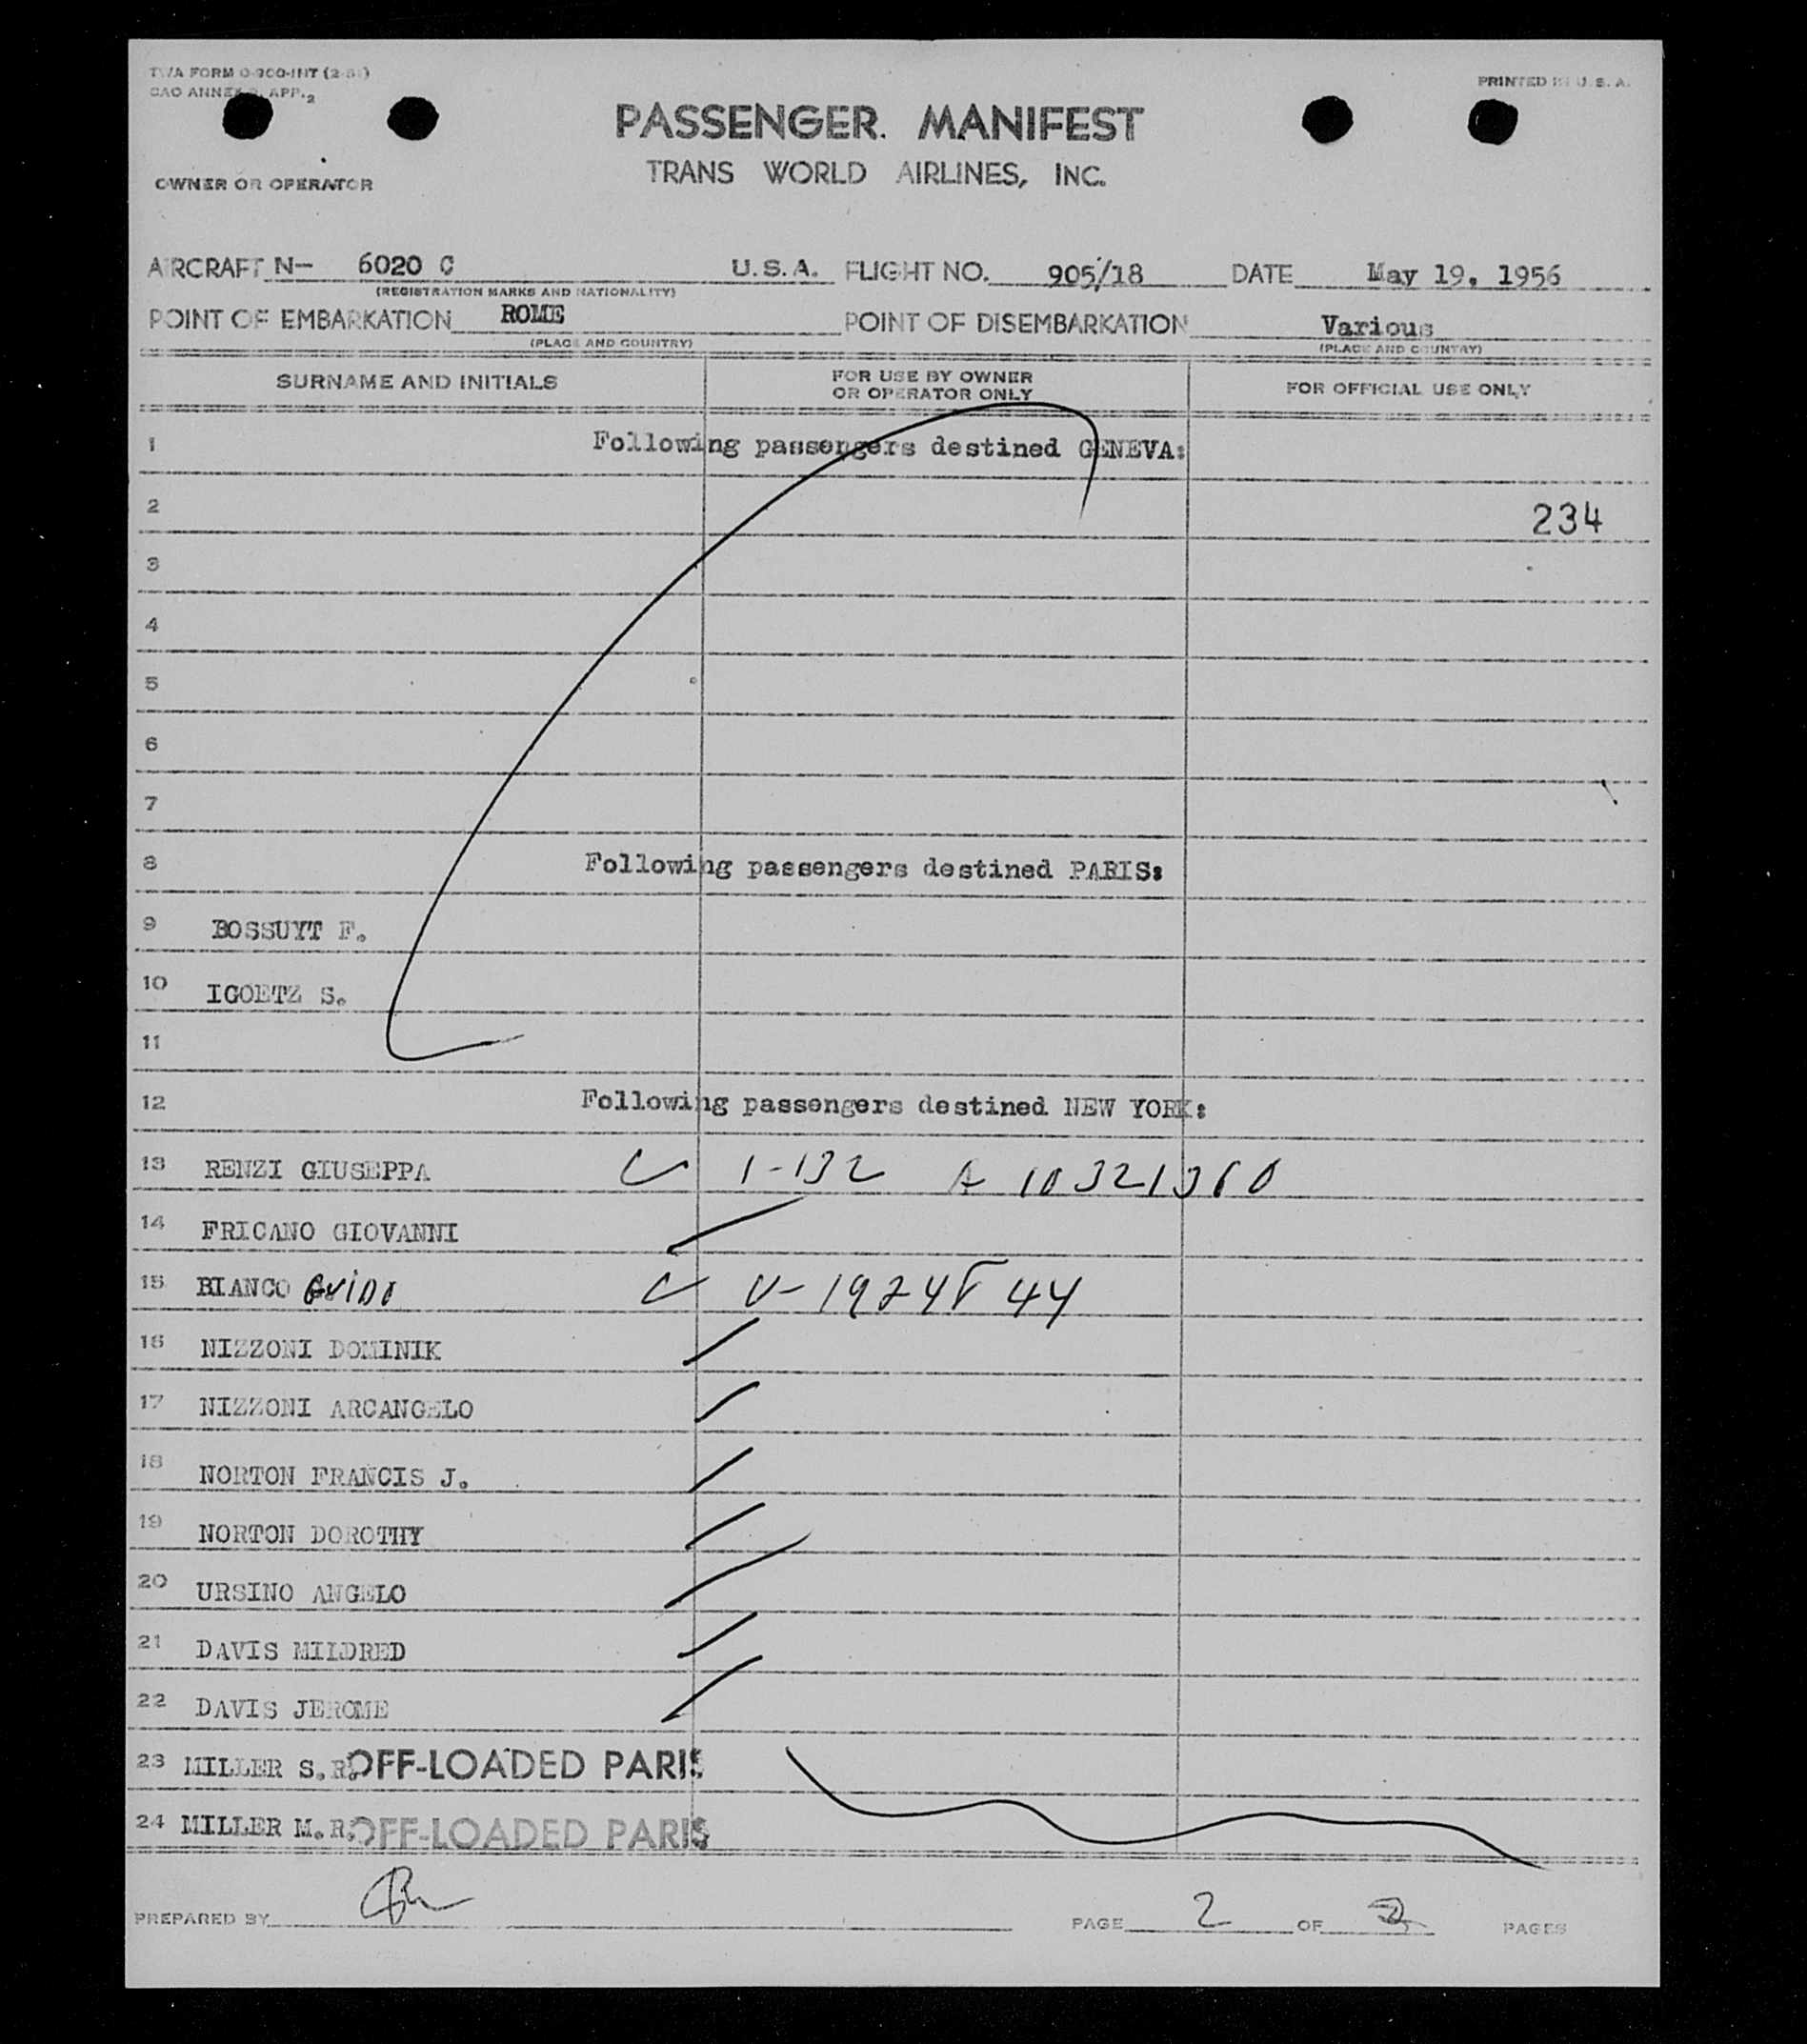 TWA FORM O-300-INT
PRINTED IN U. S. A.
PASSENGER. MANIFEST
TRANS WORLD AIRLINES, INC.
OWNER OR OPERATOR
AIRCRAFT N- 6020 C U.S.A. FLIGHT NO. 905/18 DATE May 19, 1956
(REGISTRATION MARKS AND NATIONALITY)
POINT OF EMBARKATION ROME POINT OF DISEMBARKATION Various
(PLACE AND COUNTRY) (PLACE AND COUNTRY)
SURNAME AND INITIALS FOR USE BY OWNER OR OPERATOR ONLY FOR OFFICIAL USE ONLY
1 Following passengers destined GENEVA:
2 234
3
4
5
6
7
8 Following passengers destined PARIS:
9 BOSSUYT F.
10 IGOETZ S.
11
12 Following passengers destined NEW YORK:
13 RENZI GIUSEPPA 1-132 A 10321360
14 FRICANO GIOVANNI
15 BIANCO GUIDO
16 NIZZONI DOMINIK
17 NIZZONI ARCANGELO
18 NORTON FRANCIS J.
19 NORTON DOROTHY
20 URSINO ANGELO
21 DAVIS MILDRED
22 DAVIS JEROME
23 MILLER S.R. OFF-LOADED PARIS
24 MILLER M.R. OFF-LOADED PARIS
PREPARED BY PAGE 2 OF PAGES